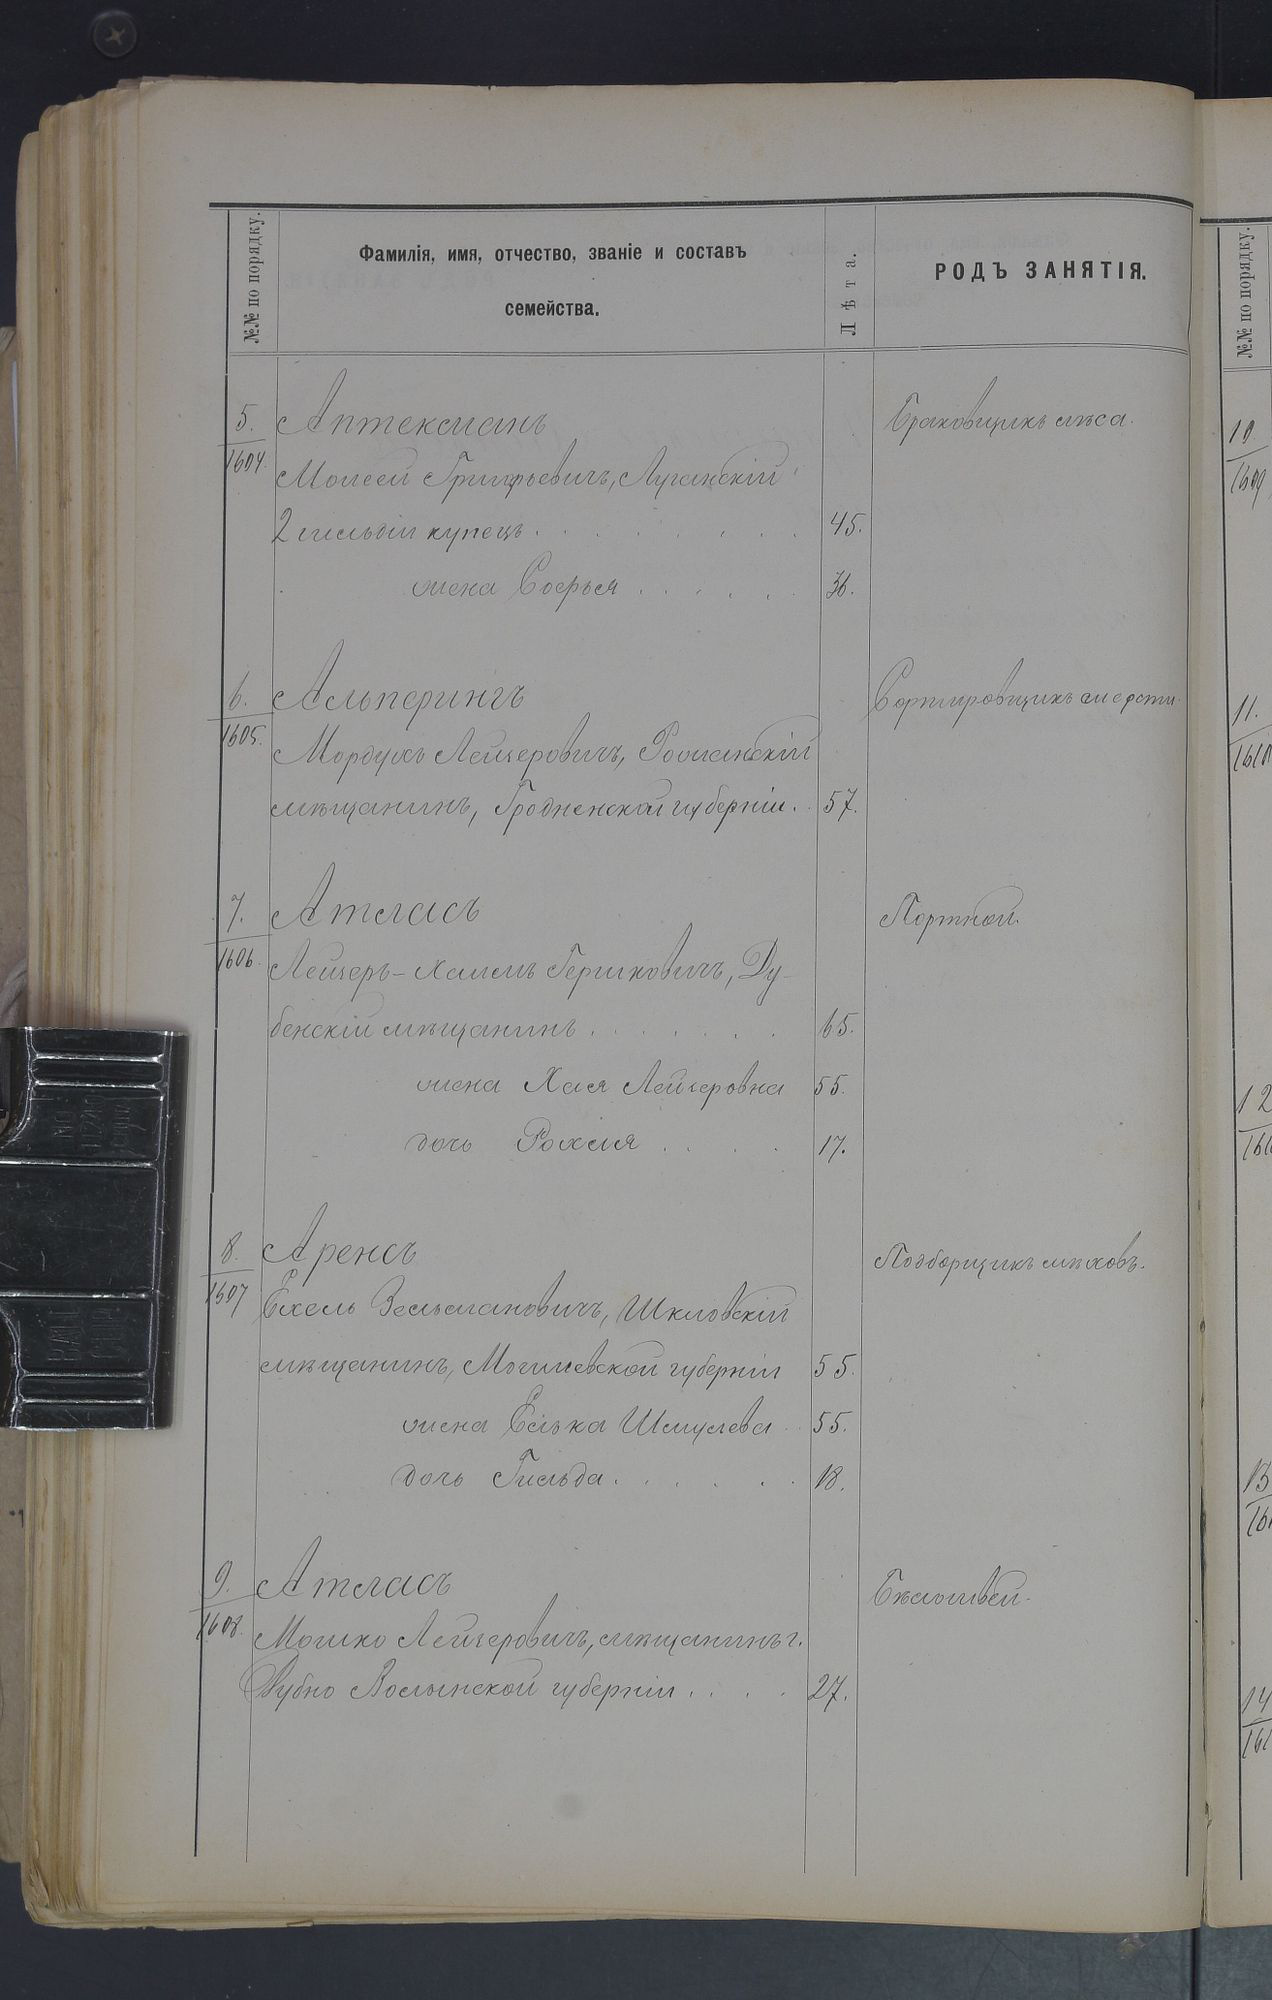 №№ по порядку.
Фамилія, имя, отчество, званіе и составъ
семейства.
Лѣта.
РОДЪ ЗАНЯТІЯ.
5. Аптекманъ Браковщикъ лѣса.
1604. Моисей Григорьевичъ, Луганскій
2 гильдіи купецъ . . . . . . . . . 45.
жена Софья . . . . . . 36.
6. Альперингъ Сортировщикъ шерсти.
1605. Мордухъ Лейзеровичъ,
мѣщанинъ, Гродненской губерніи. . 57.
7. Атласъ Портной.
1606. Лейзеръ-Хаимъ Гершковичъ, Ду-
бенскій мѣщанинъ . . . . . . . 65.
жена Хая Лейзеровна 55.
дочь Рохля . . . . 17.
8. Аренсъ Подборщикъ мѣховъ.
1607 Ехель Зельмановичъ, Шкловскій
мѣщанинъ, Могилевской губерніи 55.
жена Елька Шмулева . . 55.
дочь Гильда . . . . . . 18.
9. Атласъ Бѣлошвей.
1608. Мошко Лейзеровичъ, мѣщанинъ г.
Дубно Волынской губерніи . . . . 27.
№№ по порядку.
10
1609
11.
1610
12
13
14